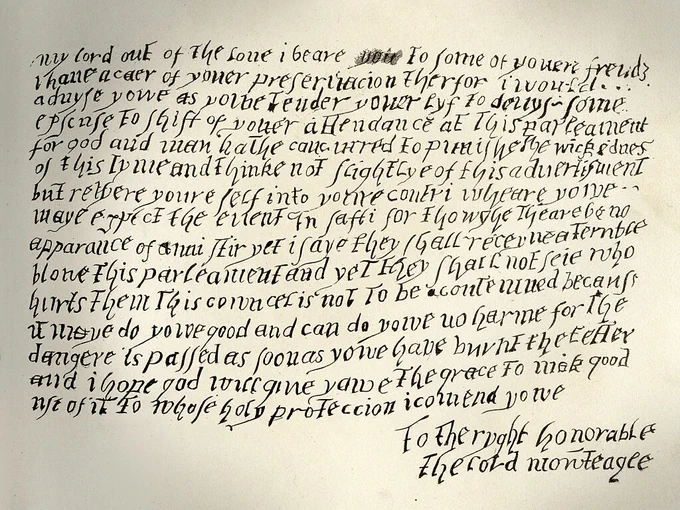 my lord out of the loue i beare to some of youere frends
i haue a caer of youer preseruacion therfor i would
aduyse yowe as yowe tender youer lyf to deuys some
epscuse to shift of youer attendance at this parleament
for god and man hathe concurred to punishe the wickednes
of this tyme and thinke not slightlye of this aduertisment
but retyere youre self into youre contri wheare yowe
maye expect the euent in safti for thowghe theare be no
apparance of anni stir yet i saye they shall receyue a terrible
blowe this parleament and yet they shall not seie who
hurts them this cowncel is not to be a contemned because
it maye do yowe good and can do yowe no harme for the
dangere is passed as soon as yowe haue burnt the letter
and i hope god will giue yowe the grace to mak good
use of it to whose holy proteccion i comend yowe
to the ryght honorable
the lord mowteagle